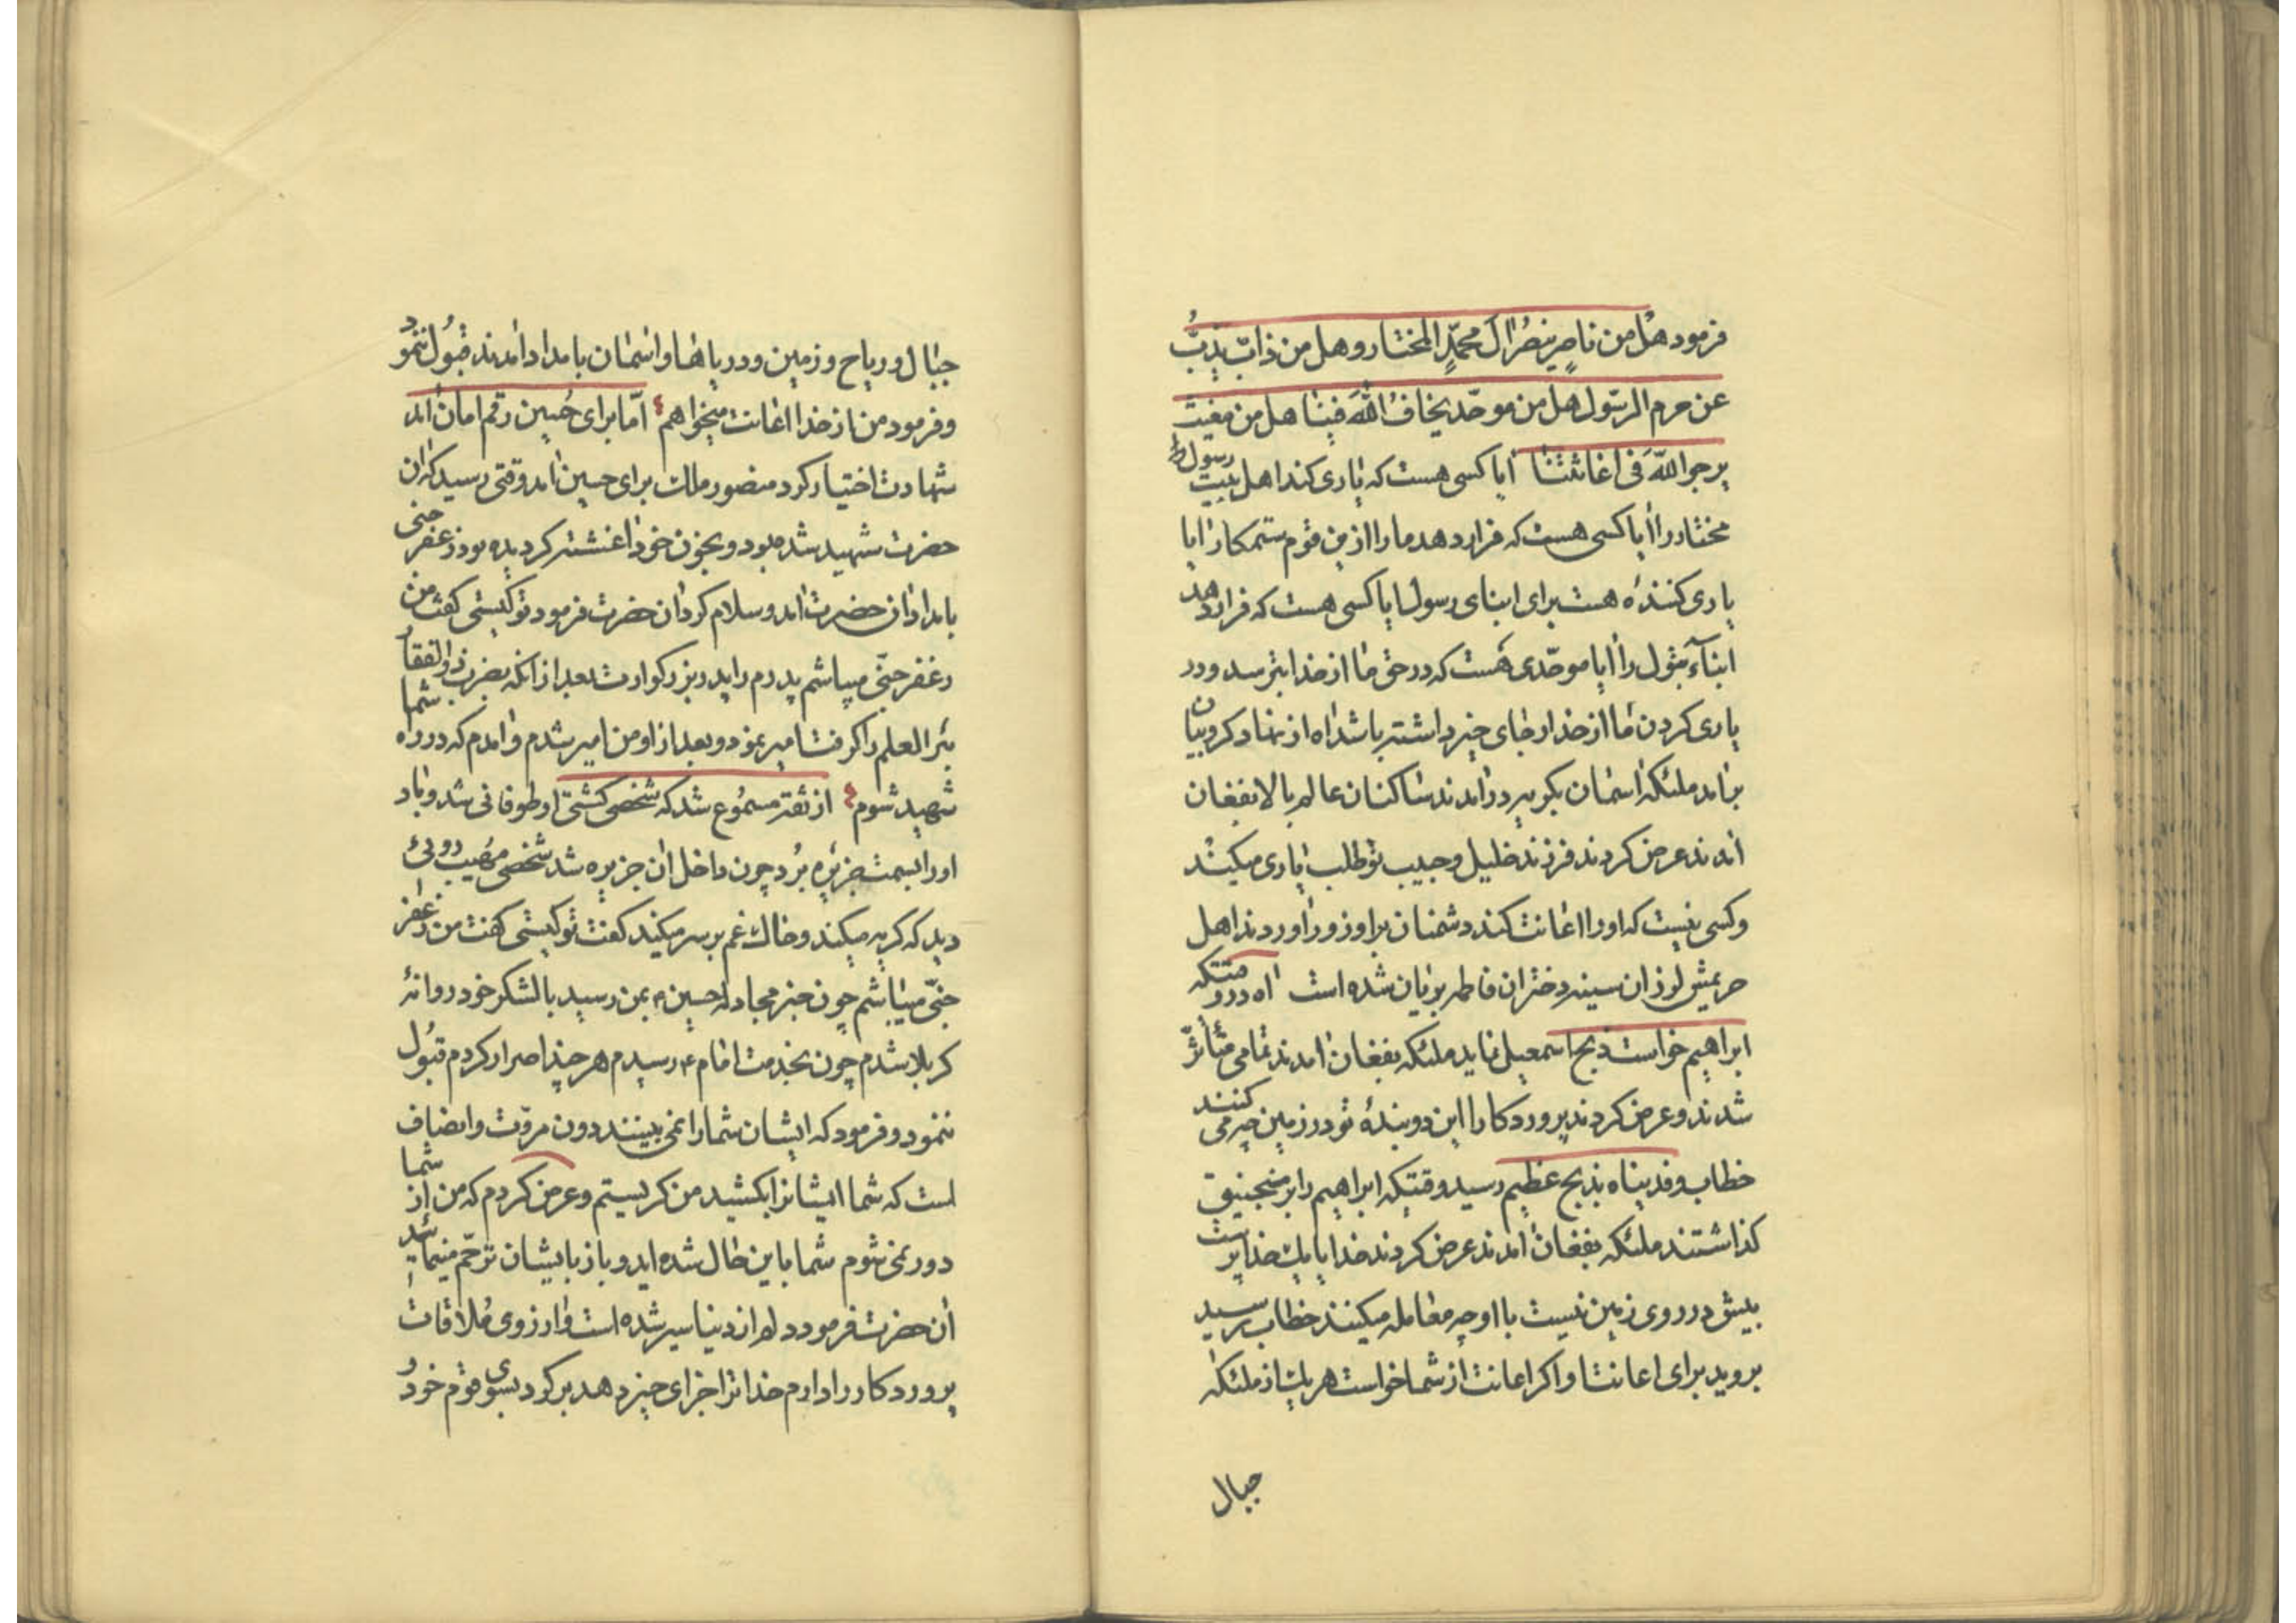 فرمود هل من ناصر ینصر ال محمد المختار و هل من ذاب یذب
عن حرم الرسول هل من موحد یخاف الله فینا هل من مغیث
یرجو الله فی اغاثتنا ایا کسی هست که یاری کند اهل بیت رسول
مختار را ایا کسی هست که قرار دهد ما را از ین قوم ستمکار ایا
یاری کننده هست برای ابنای رسول ایا کسی هست که قرار دهد
ابنآء بتول را ایا موحدی هست که در حق ما از خدا بترسد و در
یاری کردن ما از خدا رجای خیر داشته باشد اه از نهاد کروبیان
برامد ملئکه اسمان بکریه درامدند ساکنان عالم بالا بفغان
امدند عرض کردند فرزند خلیل و حبیب تو طلب یاری میکند
و کسی نیست که او را اعانت کند دشمنان بر او زور اوردند اهل
حریمش لرزان سینه دختران فاطمه بریان شده است اه در وقتیکه
ابراهیم خواست ذبح اسمعیل نماید ملئکه بفغان امدند تمامی متأثر
شدند و عرض کردند پروردکارا این دو بندهٔ تو در زمین چه می کنند
خطاب و فدیناه بذبح عظیم رسید وقتیکه ابراهیم را بر منجنیق
کذاشتند ملئکه بفغان امدند عرض کردند خدایا یك خداپرست
بیش در روی زمین نیست با او چه معامله میکنند خطاب رسید
بروید برای اعانت او اکر اعانت از شما خواست هر یك از ملئکه
جبال
جبال و ریاح و زمین و دریاها و اسمان بامداد امدند قبول ننمود
و فرمود من از خدا اعانت میخواهم اما برای حسین رقم امان امد
شهادت اختیار کرد منصور ملك برای حسین امد وقتی رسید که ان
حضرت شهید شده بود و بخون خود اغشته کردیده بود زعفر جنی
بامداد ان حضرت امد و سلام کرد ان حضرت فرمود تو کیستی کفت من
زعفر جنی میباشم پدرم را پدر بزرکوارت بعد از انکه بضرب ذوالفقار
بئر العلم را کرفت امیر نمود و بعد از او من امیر شدم و امدم که در راه شما
شهید شوم از ثقه مسموع شد که شخصی کشتی او طوفانی شد و باد
او را بسمت جزیره برد چون داخل ان جزیره شد شخصی مهیب
دید که کریه میکند و خاك غم بر سر میکند کفت تو کیستی کفت من زعفر
جنی میباشم چون خبر مجادله حسین ع بمن رسید با لشکر خود روانهٔ
کربلا شدم چون بخدمت امام ع رسیدم هر چند اصرار کردم قبول
ننمود و فرمود که ایشان شما را نمی بینند دون مروت و انصاف
است که شما ایشانرا بکشید من کریستم و عرض کردم که من از شما
دور نمی شوم شما باین حال شده اید و باز بایشان ترحم مینمائید
ان حضرت فرمود دلم از دنیا سیر شده است و ارزوی ملاقات
پروردکار را دارم خدا ترا جزای خیر دهد برکرد بسوی قوم خود